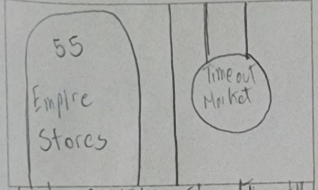 55
Empire
Stores
Timeout
Market